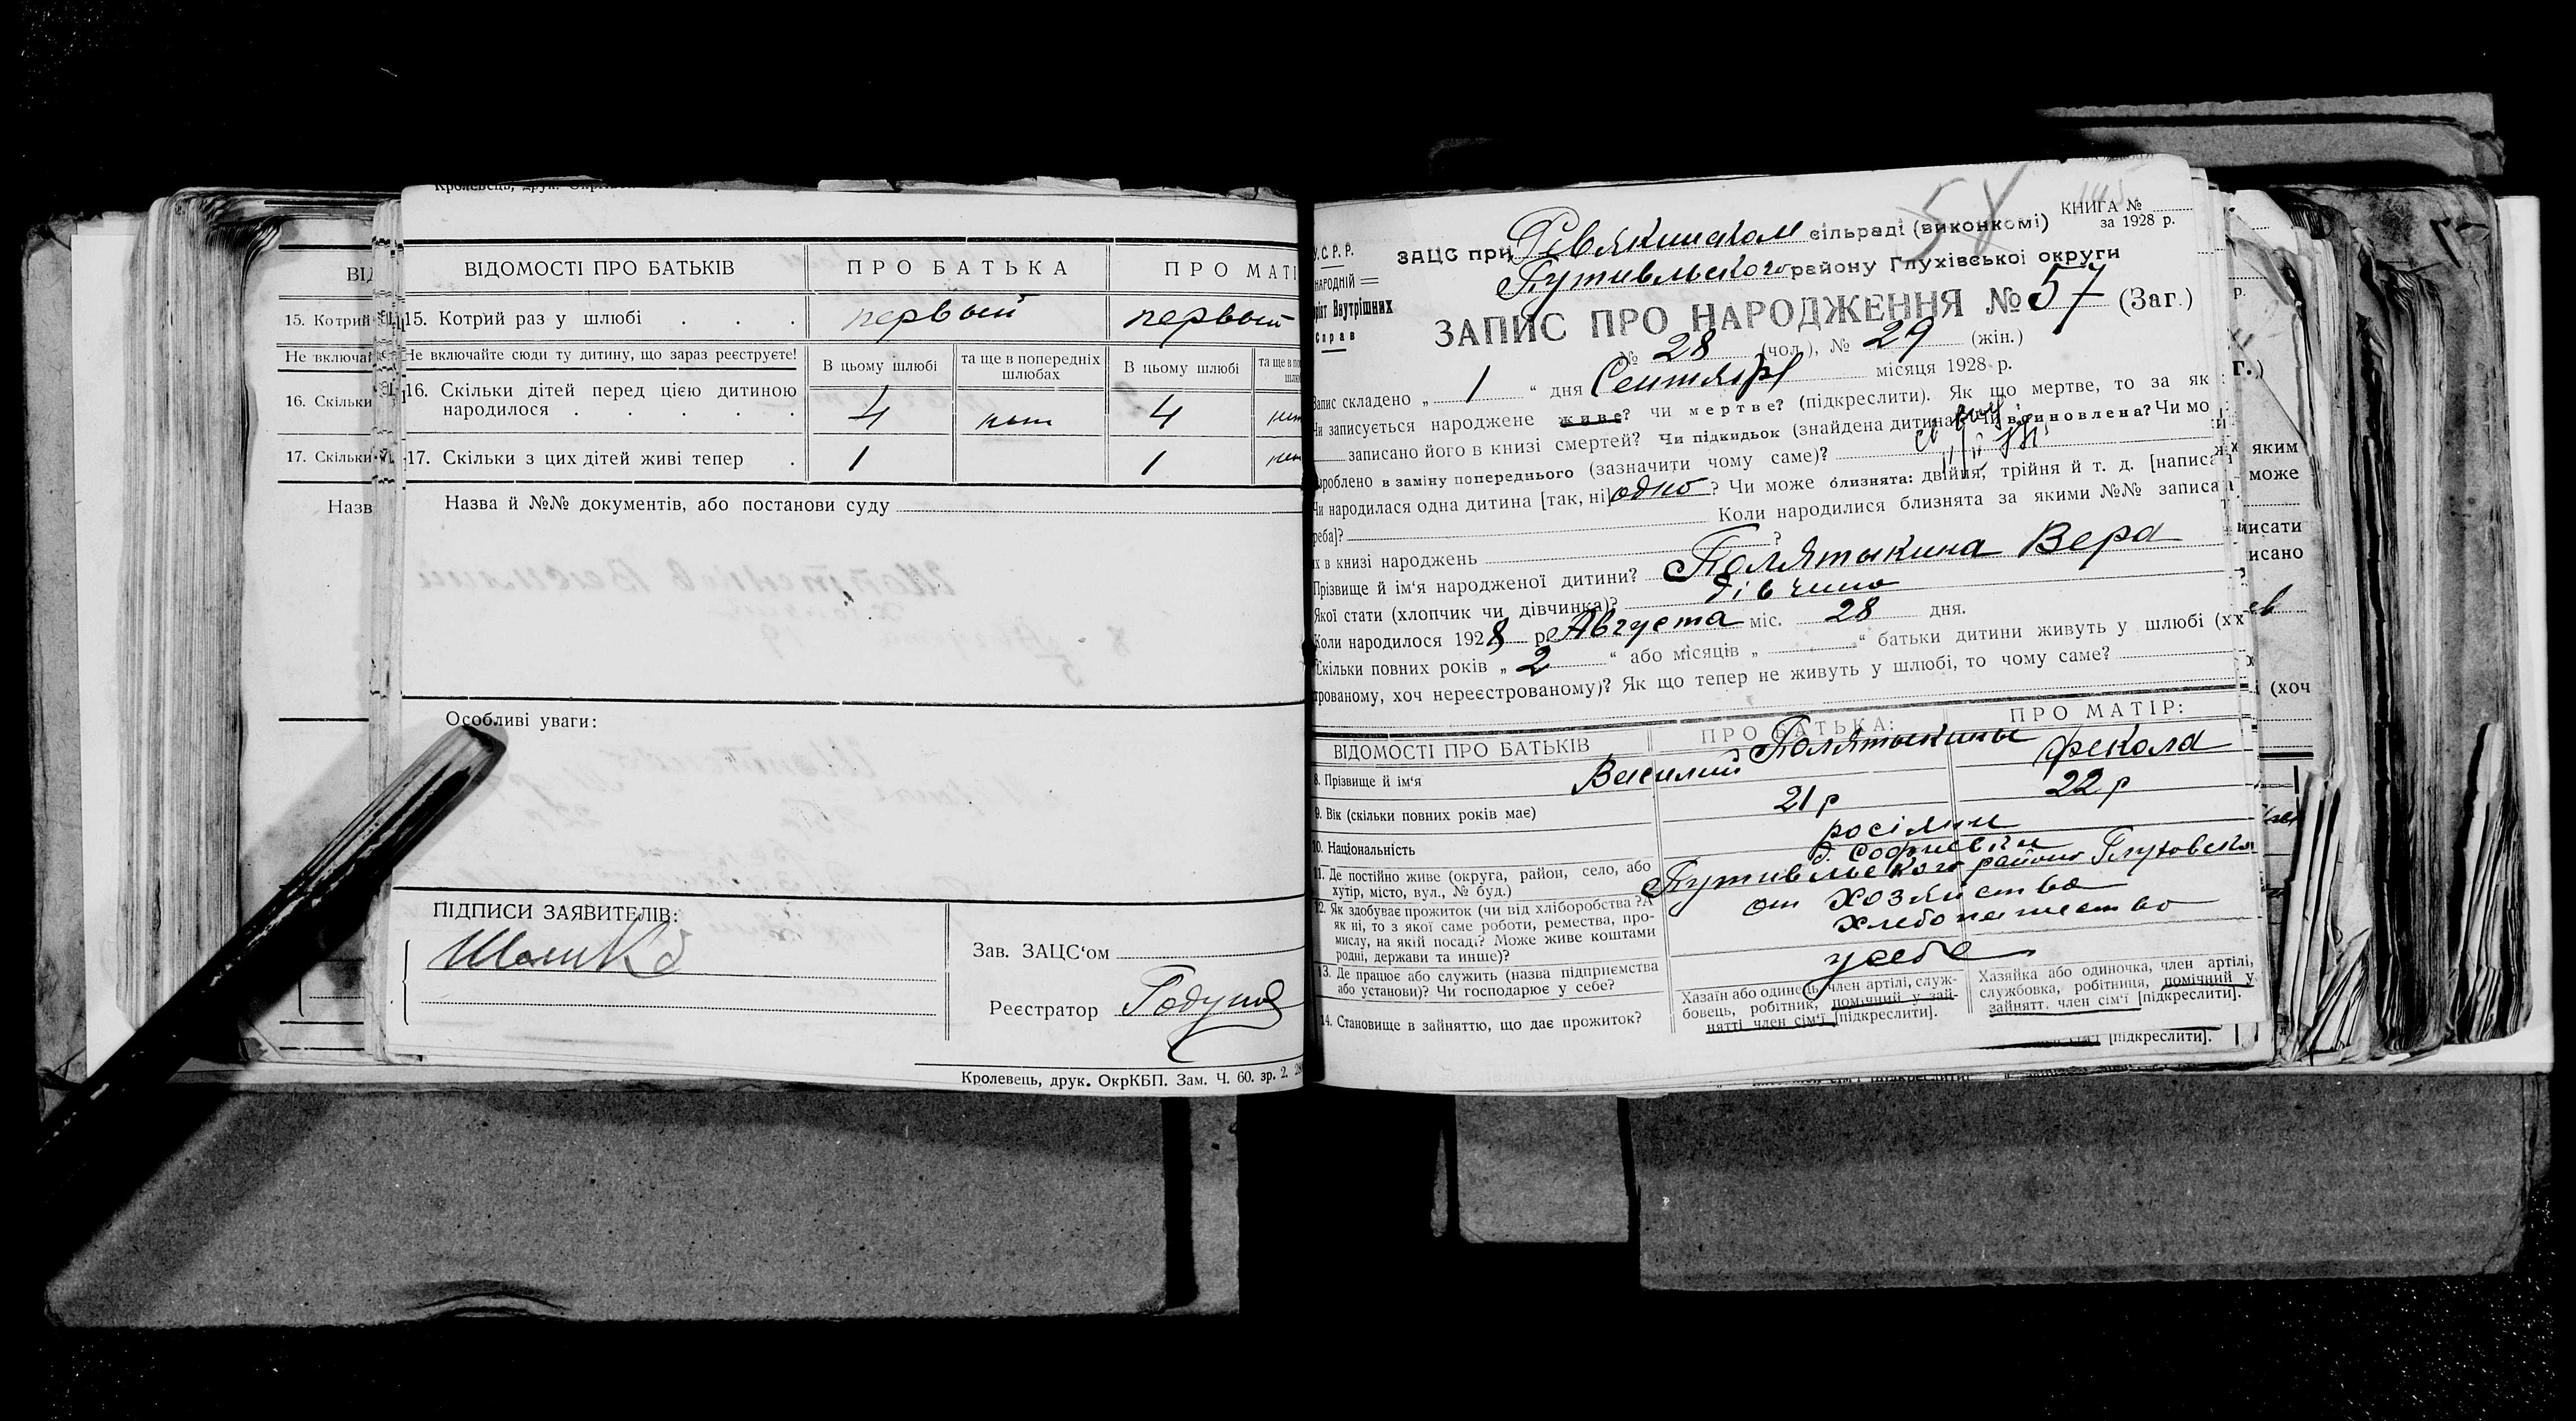 ВІДОМОСТІ ПРО БАТЬКІВ
ПРО БАТЬКА
ПРО МАТІ
15. Котрий раз у шлюбі . . .
первый
первый
Не включайте сюди ту дитину, що зараз реєструєте!
В цьому шлюбі
та ще в попередніх шлюбах
В цьому шлюбі
16. Скільки дітей перед цією дитиною
народилося . . . . .
4
нет
4
17. Скільки з цих дітей живі тепер .
1
1
Назва й №№ документів, або постанови суду
Особливі уваги:
ПІДПИСИ ЗАЯВИТЕЛІВ:
Зав. ЗАЦС‘ом
Реєстратор
Кролевець, друк. ОкрКБП. Зам. Ч. 60. зр. 2.
КНИГА №
за 1928 р.
У.С.Р.Р.
НАРОДНІЙ
Внутрішних
Справ
ЗАЦС при Ревякинском сільраді (виконкомі)
Путивльского району Глухівської округи
ЗАПИС ПРО НАРОДЖЕННЯ № 57 (Заг.)
№ 28 (чол.), № 29 (жін.)
Запис складено „ 1 “ дня Сентября місяця 1928 р.
Чи записується народжене живе? чи мертве? (підкреслити). Як що мертве, то за як
записано його в книзі смертей? Чи підкидьок (знайдена дитина)? Чи вдиновлена? Чи мо
роблено в заміну попереднього (зазначити чому саме)?
Чи народилася одна дитина [так, ні] одно ? Чи може близнята: двійня, трійня й т. д. [написа
реба]? Коли народилися близнята за якими №№ записа
их в книзі народжень ?
Прізвище й ім‘я народженої дитини? Полятыкина Вера
Якої стати (хлопчик чи дівчинка)? дівчина
Коли народилося 1928 р. Августа міс. 28 дня.
Скільки повних років „ 2 “ або місяців „ “ батьки дитини живуть у шлюбі (х
трованому, хоч нереєстрованому)? Як що тепер не живуть у шлюбі, то чому саме?
ВІДОМОСТІ ПРО БАТЬКІВ
ПРО БАТЬКА:
ПРО МАТІР:
8. Прізвище й ім‘я
Полятыкины
Василий
Фекола
9. Вік (скільки повних років має)
21 р
22 р
10. Національність
11. Де постійно живе (округа, район, село, або
хутір, місто, вул., № буд.)
д. Софиевки
Путивльского района Глуховской
12. Як здобуває прожиток (чи від хліборобства? А
як ні, то з якої саме роботи, ремества, про-
мислу, на якій посаді? Може живе коштами
родні, держави та инше)?
от хозяйства
хлебопашество
13. Де працює або служить (назва підприємства
або установи)? Чи господарює у себе?
у себе
14. Становище в зайняттю, що дає прожиток?
Хазяїн або одинець, член артілі, служ-
бовець, робітник, помічний у зай-
нятті член сім‘ї [підкреслити].
Хазяйка або одиночка, член артілі,
службовка, робітниця, помічний у
зайнятт. член сім‘ї [підкреслити].
[підкреслити].